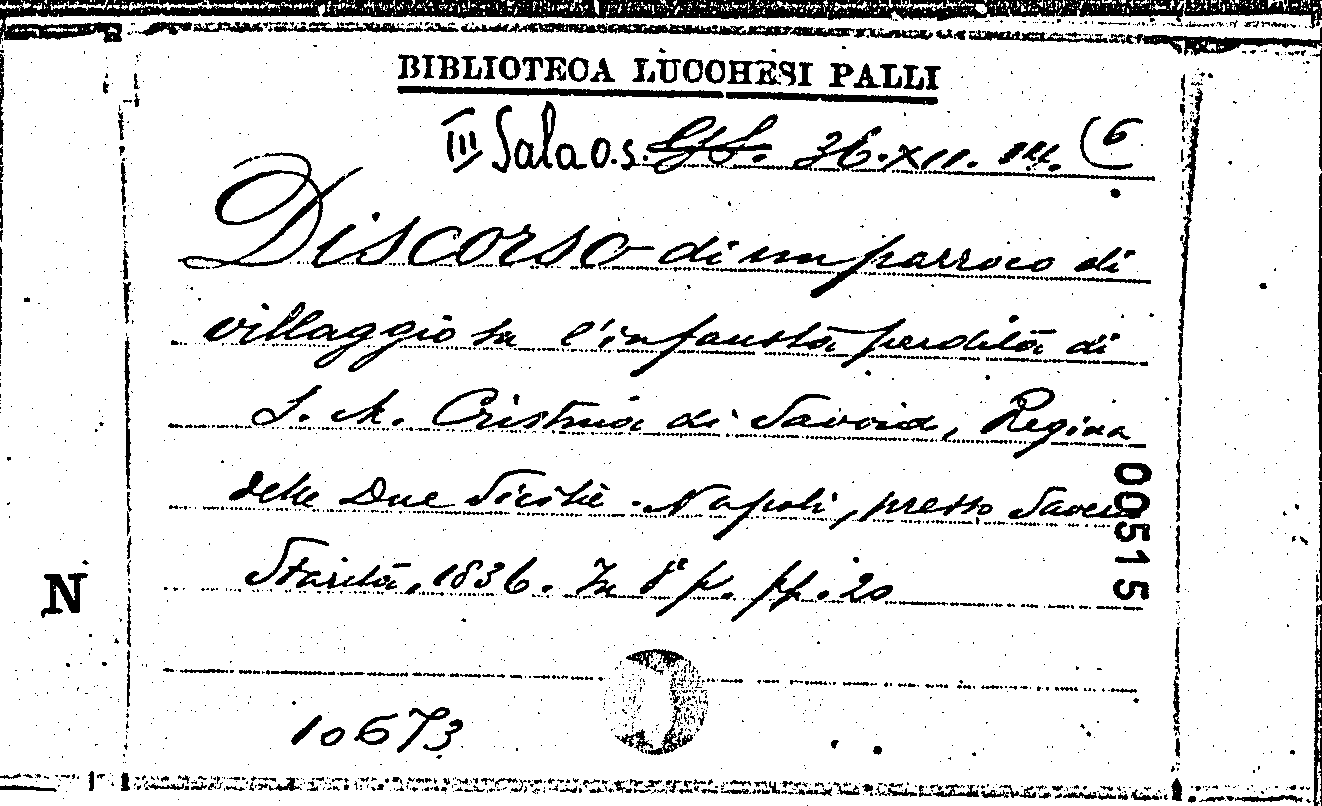 BIBLIOTECA LUCCHESI PALLI
III Sala O.S. 36.XII. (6
Discorso di un parroco di
villaggio su l'infausta perdita di
S. M. Cristina di Savoia, Regina
delle Due Sicilie. Napoli, presso Saverio
Starita, 1836. In 8° p. pp. 20
00515
N
10673